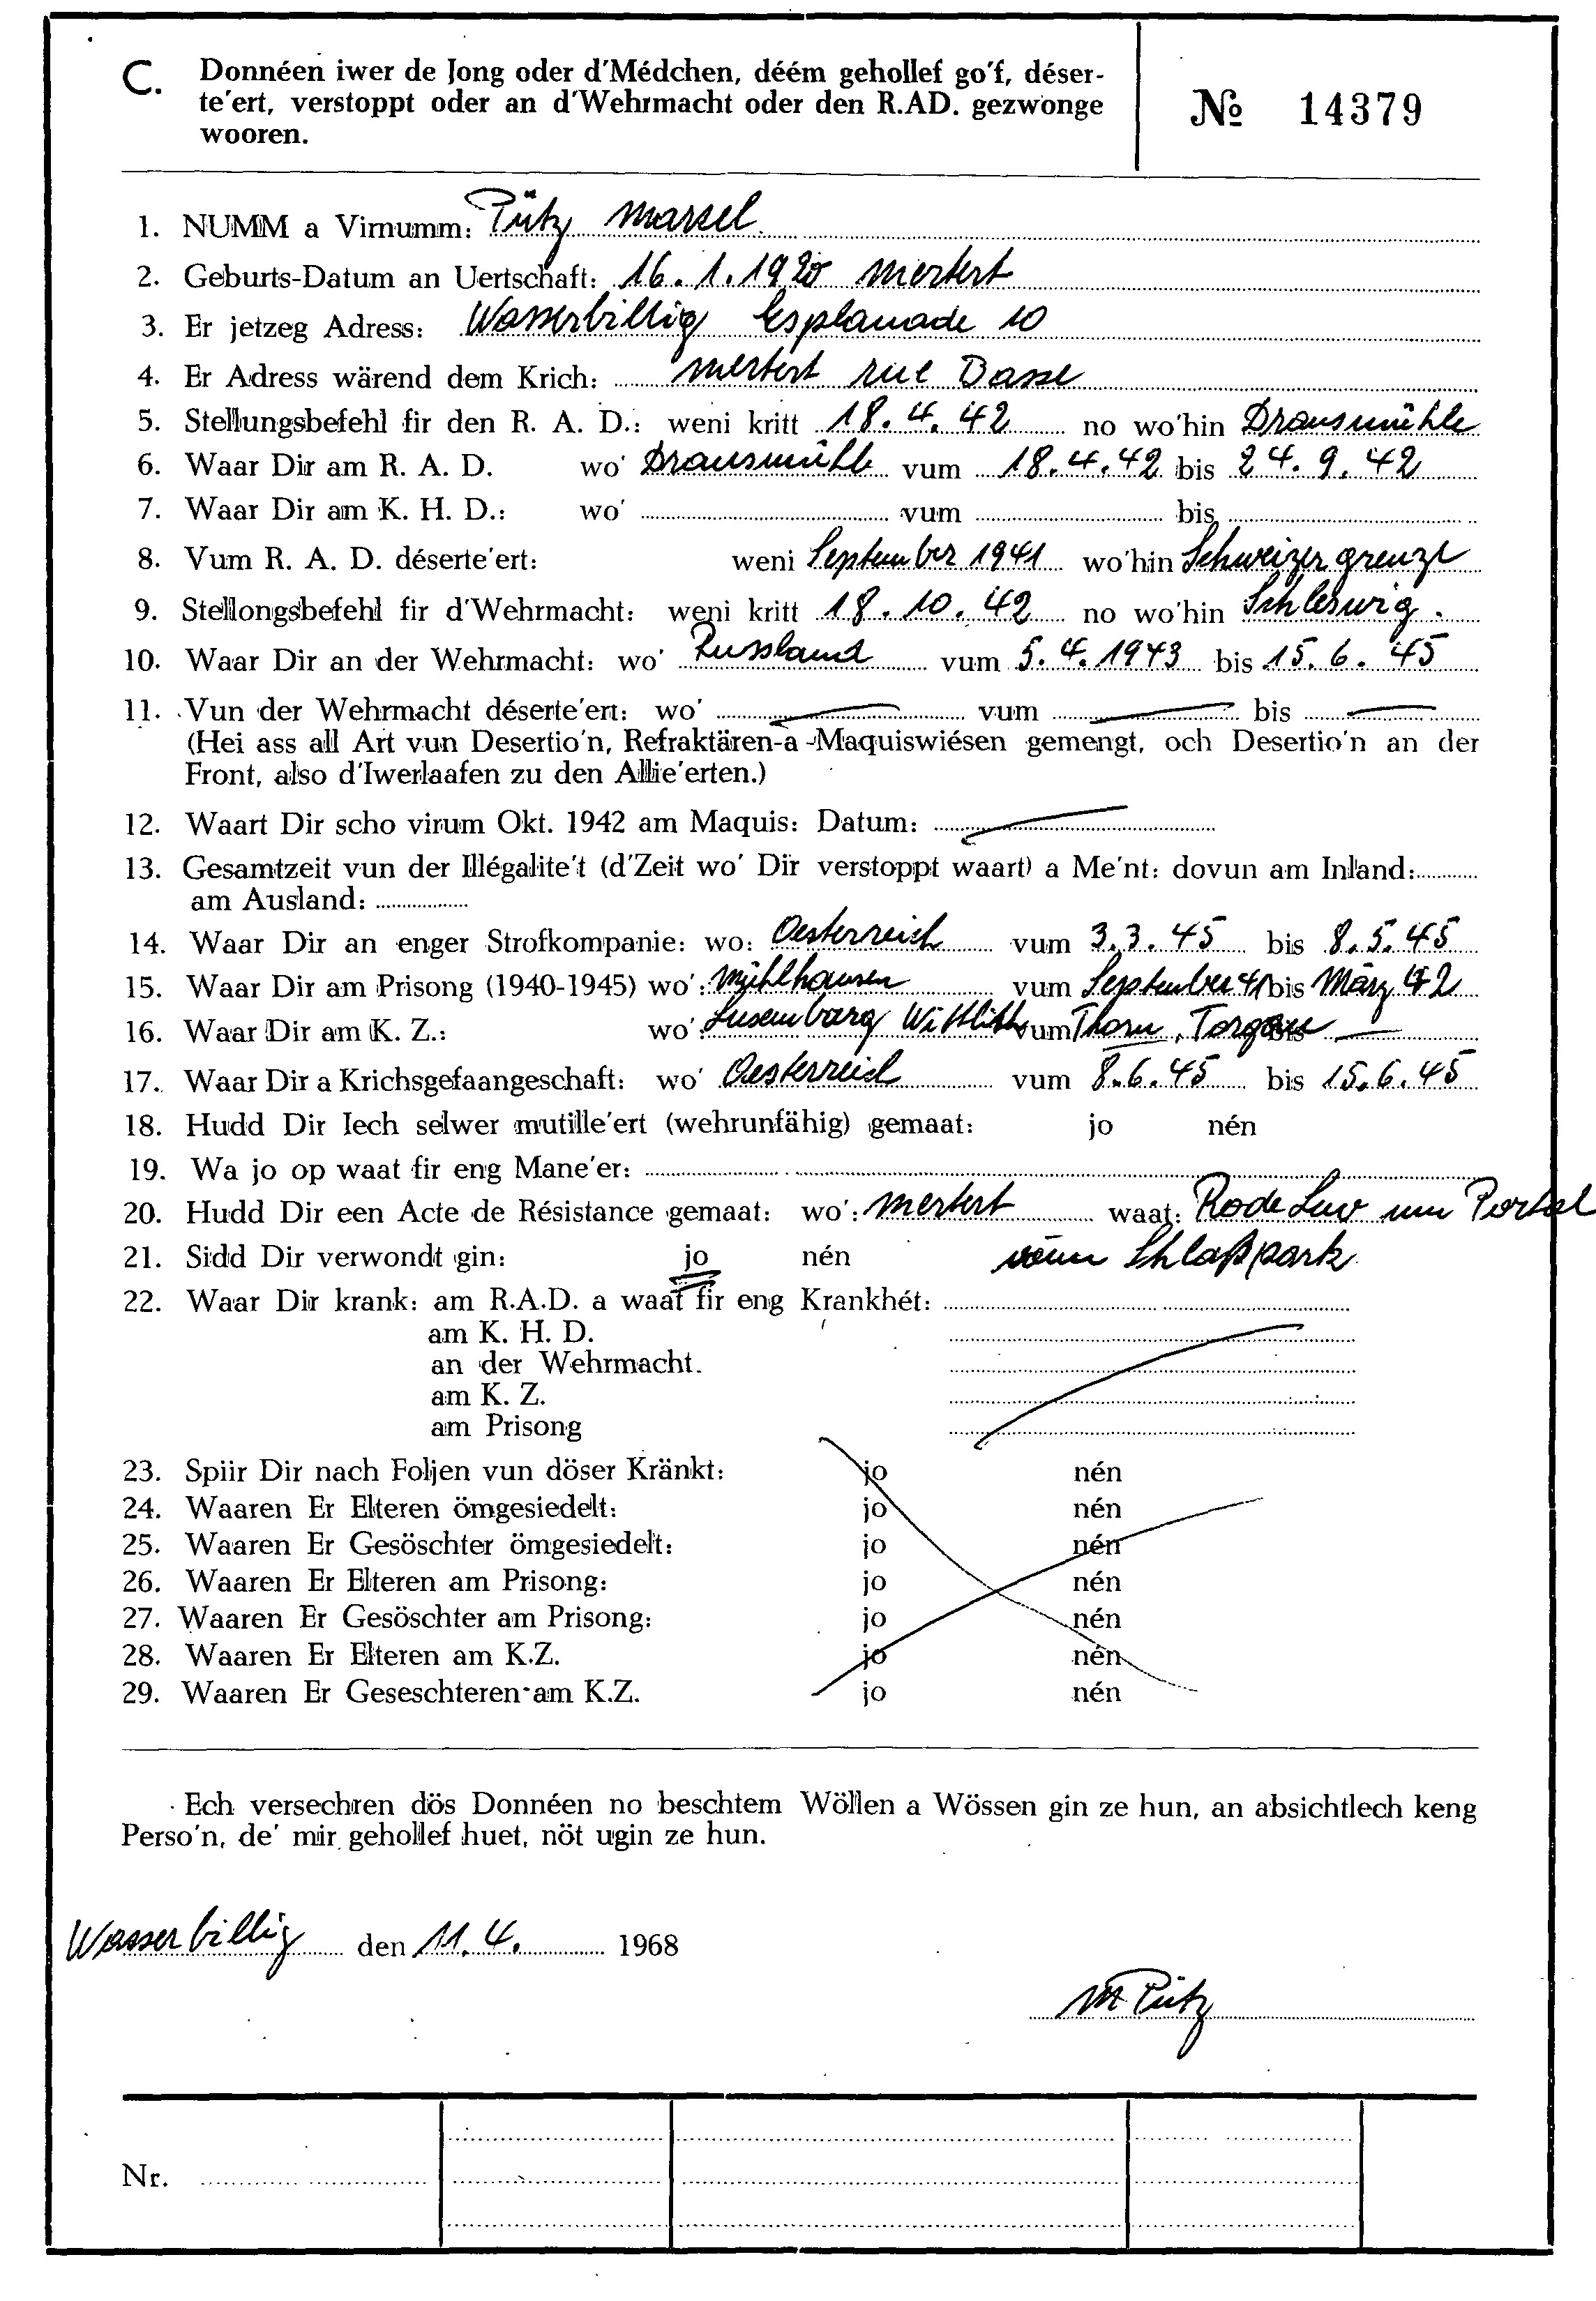 C. Donnéen iwer de Jong oder d'Médchen, déém gehollef go'f, déser-
te'ert, verstoppt oder an d'Wehrmacht oder den R.AD. gezwonge
wooren.
№ 14379
1. NUMM a Virnumm: Pütz Marsel
2. Geburts-Datum an Uertschaft: 16.1.1920 Mertert
3. Er jetzeg Adress: Wasserbillig Esplanade 10
4. Er Adress wärend dem Krich: Mertert rue Basse
5. Stellungsbefehl fir den R. A. D.: weni kritt 18.4.42 no wo'hin Drausmühle
6. Waar Dir am R. A. D. wo' Drausmühle vum 18.4.42 bis 24.9.42
7. Waar Dir am K. H. D.: wo' vum bis
8. Vum R. A. D. déserte'ert: weni September 1941 wo'hin Schweizer grenze
9. Stellongsbefehl fir d'Wehrmacht: weni kritt 18.10.42 no wo'hin Schleswig.
10. Waar Dir an der Wehrmacht: wo' Russland vum 5.4.1943 bis 15.6.45
11. Vun der Wehrmacht déserte'ert: wo' vum bis
(Hei ass all Art vun Desertio'n, Refraktären-a-Maquiswiésen gemengt, och Desertio'n an der
Front, also d'Iwerlaafen zu den Allie'erten.)
12. Waart Dir scho virum Okt. 1942 am Maquis: Datum:
13. Gesamtzeit vun der Illégalite't (d'Zeit wo' Dir verstoppt waart) a Me'nt: dovun am Inland:
am Ausland:
14. Waar Dir an enger Strofkompanie: wo: Oesterreich vum 3.3.45 bis 8.5.45
15. Waar Dir am Prisong (1940-1945) wo': Mühlhausen vum September 41 bis März 42
16. Waar Dir am K. Z.: wo': Luxemburg Wittlich vum Thorn, Torgau bis —
17. Waar Dir a Krichsgefaangeschaft: wo' Oesterreich vum 8.6.45 bis 15.6.45
18. Hudd Dir Iech selwer mutille'ert (wehrunfähig) gemaat: jo nén
19. Wa jo op waat fir eng Mane'er:
20. Hudd Dir een Acte de Résistance gemaat: wo': Mertert waat: Rode Luv um Portal
21. Sidd Dir verwondt gin: jo nén vum Schlaßpark
22. Waar Dir krank: am R.A.D. a waat fir eng Krankhét:
am K. H. D.
an der Wehrmacht.
am K. Z.
am Prisong
23. Spiir Dir nach Foljen vun döser Kränkt: jo nén
24. Waaren Er Elteren ömgesiedelt: jo nén
25. Waaren Er Gesöschter ömgesiedelt: jo nén
26. Waaren Er Elteren am Prisong: jo nén
27. Waaren Er Gesöschter am Prisong: jo nén
28. Waaren Er Elteren am K.Z. jo nén
29. Waaren Er Geseschteren am K.Z. jo nén
Ech versechren dös Donnéen no beschtem Wöllen a Wössen gin ze hun, an absichtlech keng
Perso'n, de' mir gehollef huet, nöt ugin ze hun.
Wasserbillig den 11.4. 1968
M Pütz
Nr.